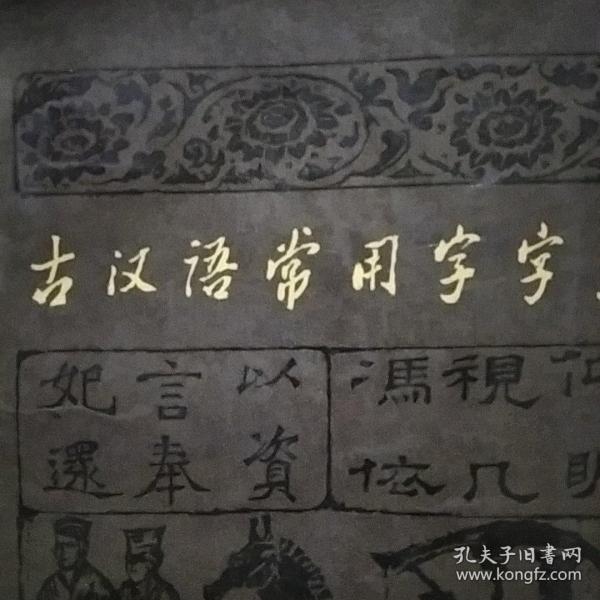 古汉语常用字字
妃言以 馮視
還奉資 依几
孔夫子旧书网
www.kongfz.com